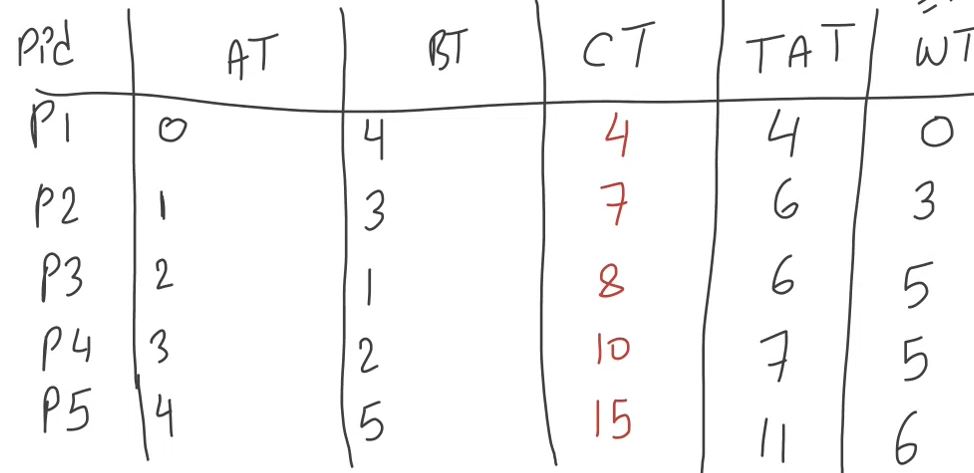 Pid AT BT CT TAT WT
P1 0 4 4 4 0
P2 1 3 7 6 3
P3 2 1 8 6 5
P4 3 2 10 7 5
P5 4 5 15 11 6